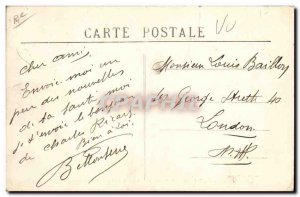 CARTE POSTALE
cher ami
Envoie moi un
peu des nouvelles
de ta santé moi
je t'envoie le bonjour
de Charles
Bien à toi
Monsieur Louis
George Street 40
London